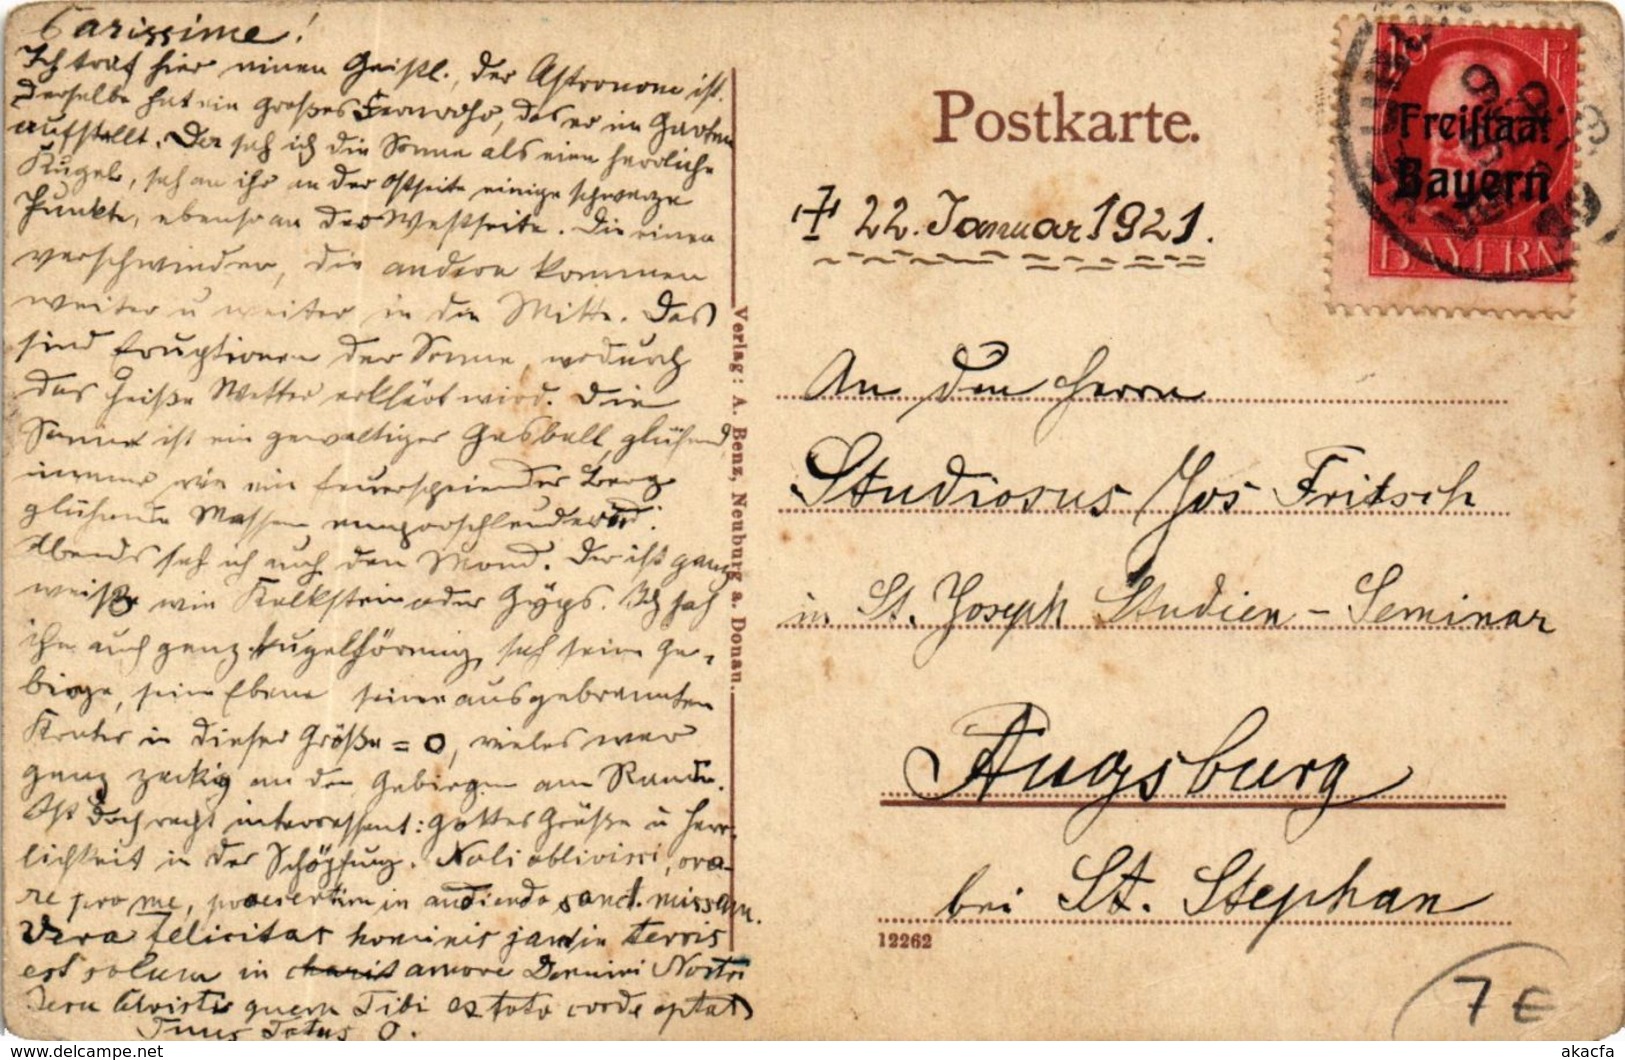 Carissime!
Ich traf hier einen Geistl., der Astronom ist.
Derselbe hat ein großes Fernrohr, das er im Garten
aufstellt. Da sah ich die Sonne als eine herrliche
Kugel, sah an ihr an der Ostseite einige schwarze
Punkte, ebenso an der Westseite. Die einen
verschwinden, die andern kommen
weiter u weiter in die Mitte. Das
sind Eruptionen der Sonne, wodurch
das heiße Wetter erklärt wird. Die
Sonne ist ein gewaltiger Gasball, glühend
immer wie ein feuerspeiender Berg
glühende Massen emporschleudernd.
Abends sah ich auch den Mond. Der ist ganz
weiß wie Kalkstein oder Gyps. Ich sah
ihn auch ganz kugelförmig, sah seine Ge-
birge, seine Ebene seine ausgebrannten
Krater in dieser Größe = O, vieles war
ganz zackig an den Gebirgen am Rande.
Ist doch recht interessant: Gottes Größe u Herr-
lichkeit in der Schöpfung. Noli oblivisci, ora-
re pro me, praesertim in audiendo sanct. missam.
Vera felicitas hominis jam in terris
est solum in amore Domini Nostri
Jesu Christi quem Tibi ex toto corde optat
Tuus Totus O.
Verlag: A. Benz, Neuburg a. Donau.
Postkarte.
Freistaat
Bayern
BAYERN
22. Januar 1921.
An den Herrn
Studiosus Jos Fritsch
in St. Joseph Studien - Seminar
Augsburg
bei St. Stephan
12262
7€
akacfa